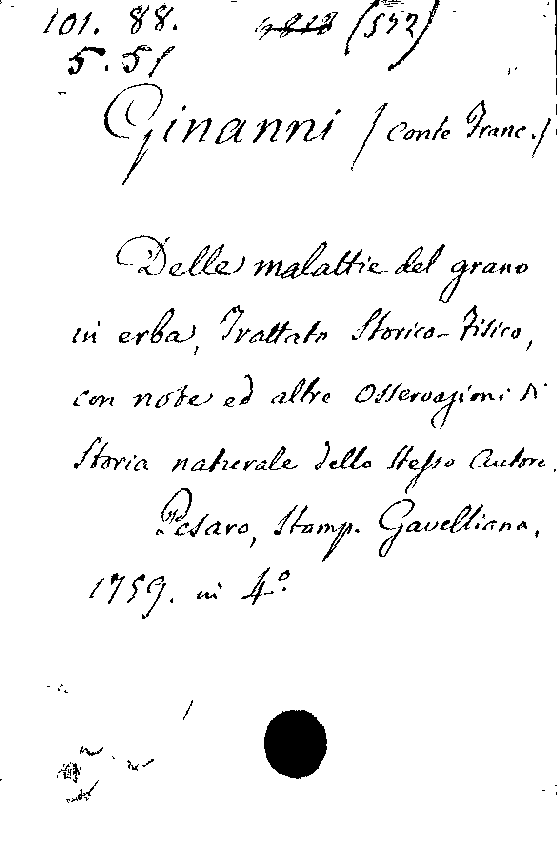 101. 88. (592)
5.51
Ginanni /Conte Franc./
Delle malattie del grano
in erba, Trattato Storico-Fisico,
con note ed altre Osservazioni di
Storia naturale dello stesso Autore.
Pesaro, Stamp. Gavelliana,
1759. in 4.º